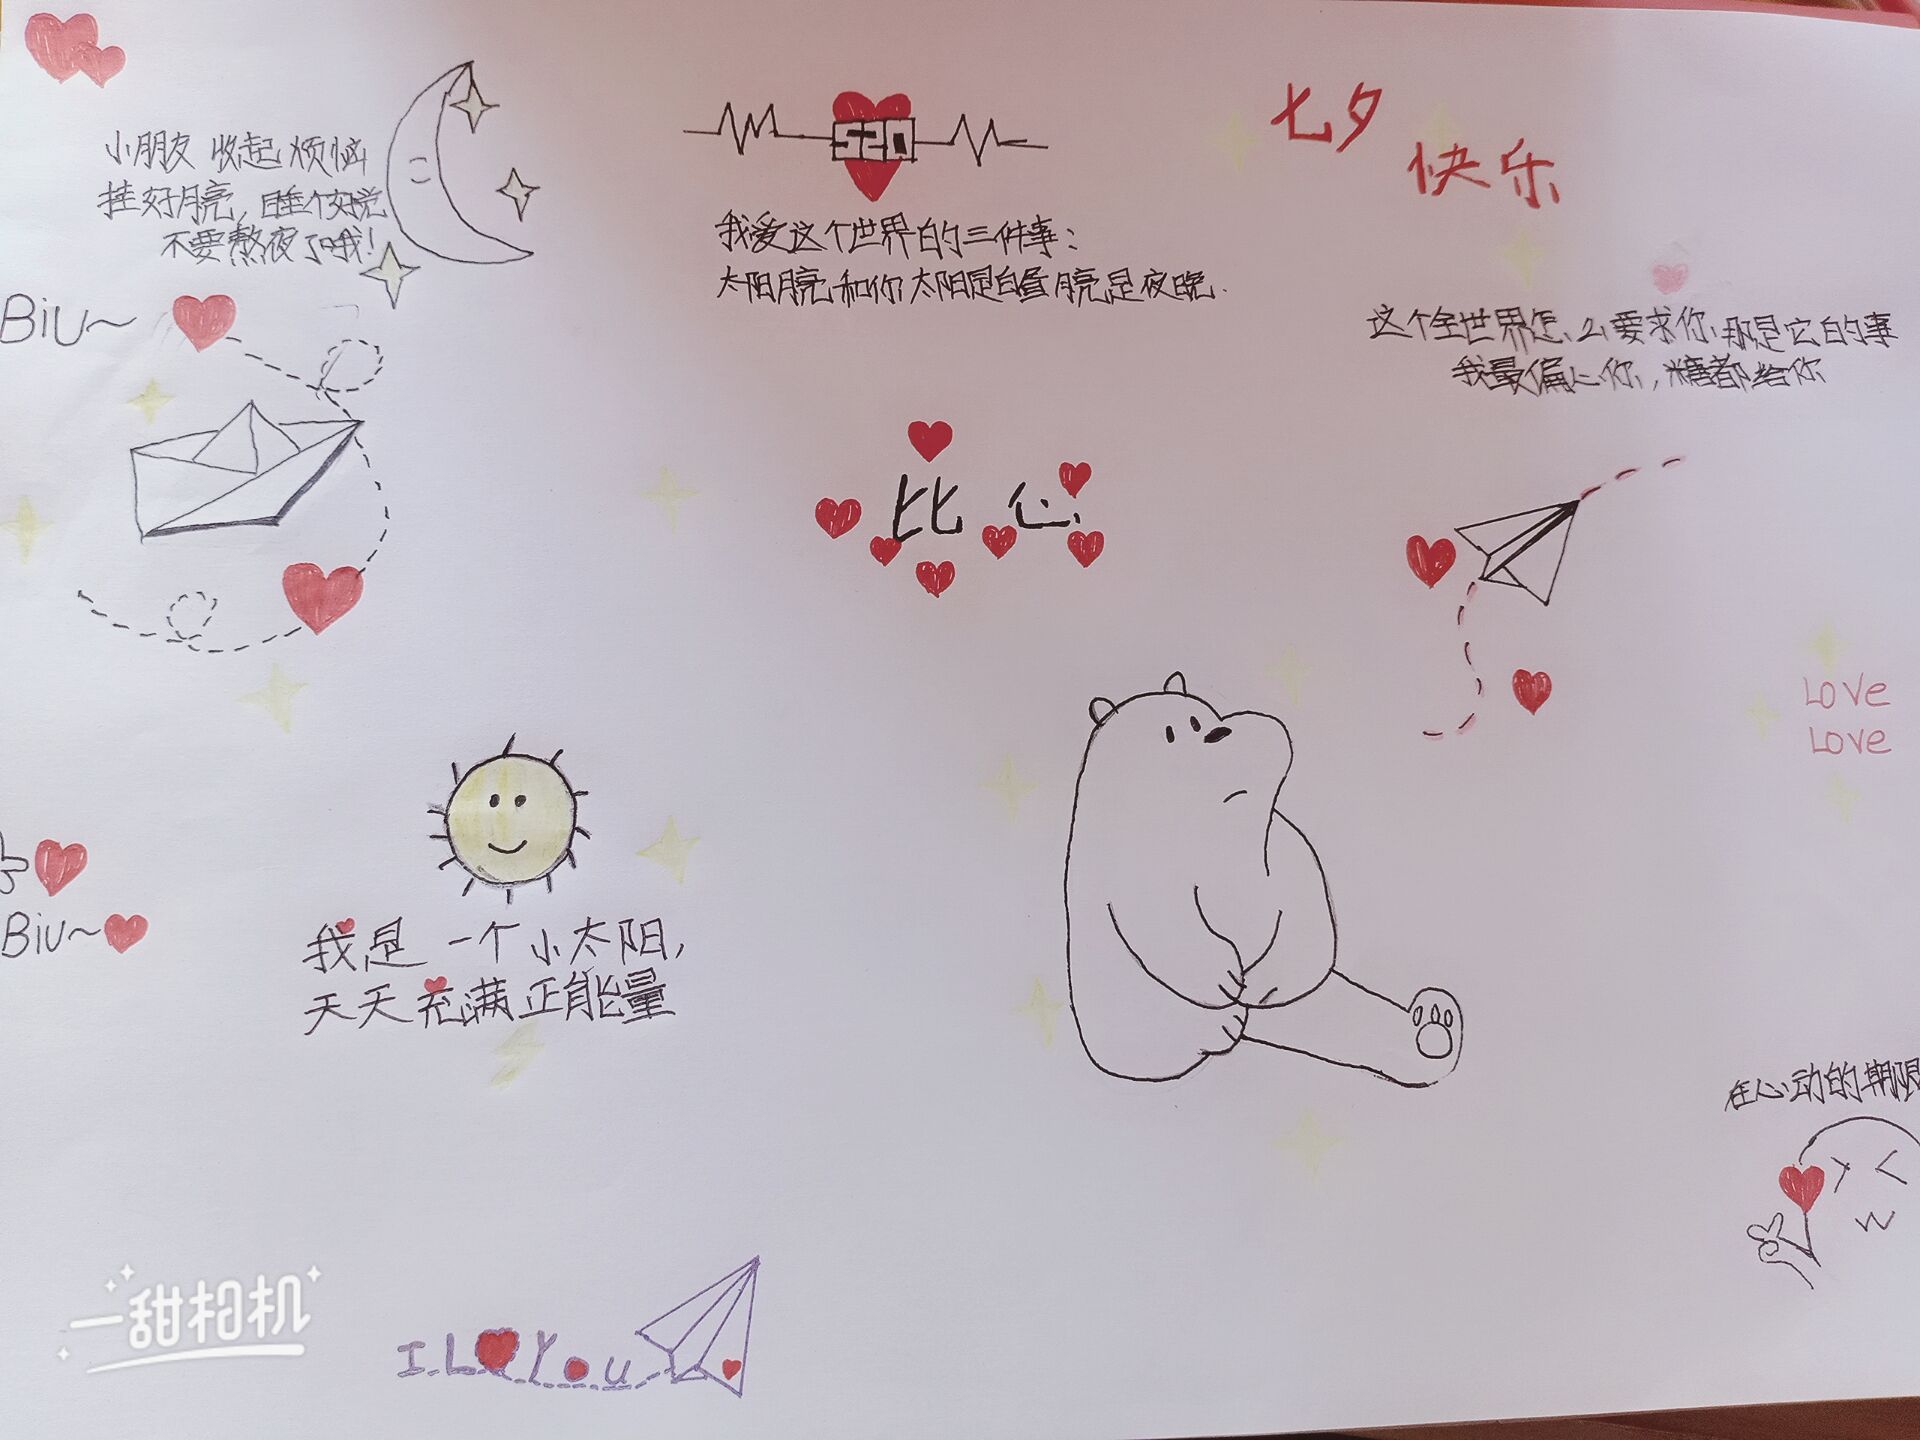 小朋友 收起 烦恼
挂好月亮,睡个好觉
不要熬夜了哦!
Biu~
520
我爱这个世界的三件事:
太阳月亮和你 太阳是白昼 月亮是夜晚.
七夕
快乐
这个全世界怎么要求你,那是它的事
我最偏心你,糖都给你
比心
Love
Love
Biu~
我是一个小太阳,
天天充满正能量
在心动的期限
I Lo You
一甜相机